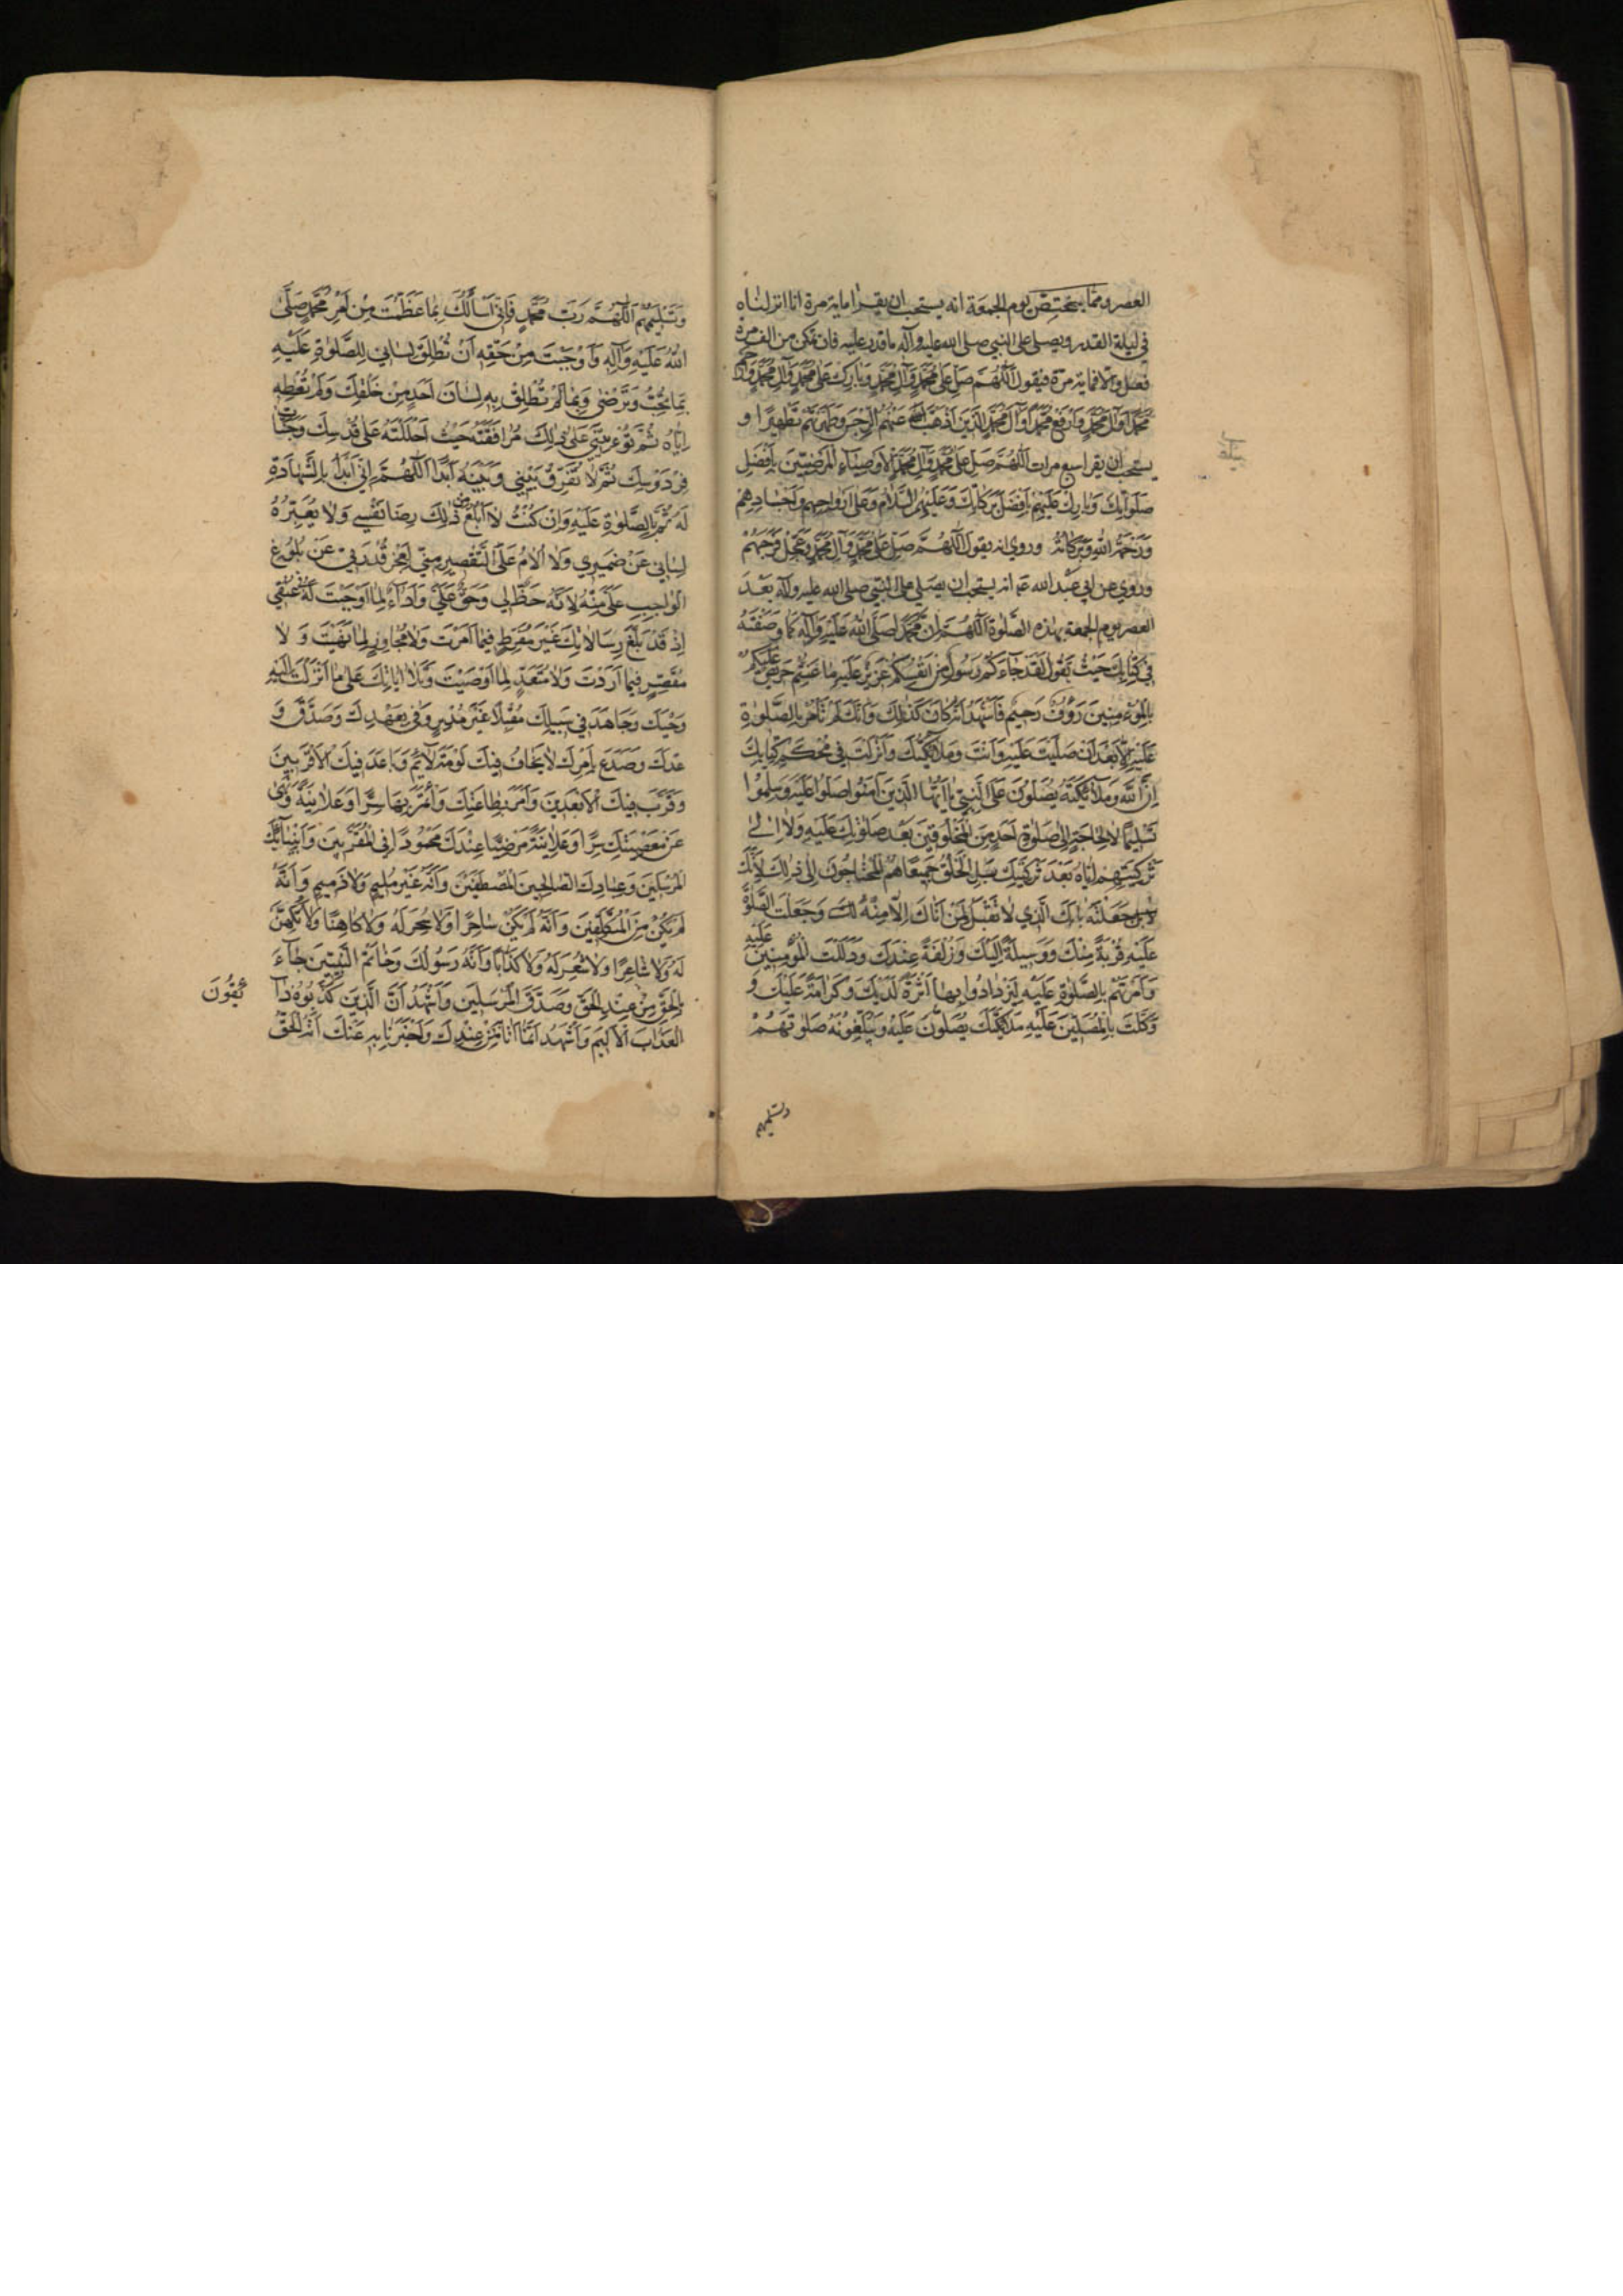 العصر ومما يختص يوم الجمعة انه يستحب ان يقرا ماية مرة انا انزلناه
في ليلة القدر ويصلي على النبي صلى الله عليه وآله ما قدر عليه فان تمكن من الف مرة
فعل والا فماية مرة فيقول اَللّهُمَّ صَلِّ عَلى مُحَمَّدٍ وَآلِ مُحَمَّدٍ وَبارِك عَلى مُحَمَّدٍ وَآلِ مُحَمَّدٍ وَارحَم
مُحَمَّدًا وَآلَ مُحَمَّدٍ وَارفَع مُحَمَّدًا وَآلَ مُحَمَّدٍ الَّذينَ اَذهَبَ اللهُ عَنهُمُ الرِّجسَ وَطَهَّرتَهُم تَطهيرًا و
يستحب ان يقرا سبع مرات اَللّهُمَّ صَلِّ عَلى مُحَمَّدٍ وَآلِ مُحَمَّدٍ الاَوصِياءِ المَرضِيّينَ بِاَفضَلِ
صَلَواتِكَ وَبارِك عَلَيهِم بِاَفضَلِ بَرَكاتِكَ وَعَلَيهِمُ السَّلامُ وَعَلى اَرواحِهِم وَاَجسادِهِم
وَرَحمَةُ اللهِ وَبَرَكاتُهُ وروي انه يقول اَللّهُمَّ صَلِّ عَلى مُحَمَّدٍ وَآلِ مُحَمَّدٍ وَعَجِّل فَرَجَهُم
وروي عن ابي عبد الله ع انه يستحب ان يصلي على النبي صلى الله عليه وآله بعد
العصر يوم الجمعة بهذه الصلوة اَللّهُمَّ اِنَّ مُحَمَّدًا صَلَّى اللهُ عَلَيهِ وَآلِهِ كَما وَصَفتَهُ
في كِتابِكَ حَيثُ تَقُولُ لَقَد جاءَكُم رَسُولٌ مِن اَنفُسِكُم عَزيزٌ عَلَيهِ ما عَنِتُّم حَريصٌ عَلَيكُم
بِالمُؤمِنينَ رَؤُفٌ رَحيمٌ فَاَشهَدُ اَنَّهُ كانَ كَذلِكَ وَاَنَّكَ لَم تَأمُر بِالصَّلوةِ
عَلَيهِ اِلّا بَعدَ اَن صَلَّيتَ عَلَيهِ وَاَنتَ وَمَلائِكَتُكَ وَاَنزَلتَ في مُحكَمِ كِتابِكَ
اِنَّ اللهَ وَمَلائِكَتَهُ يُصَلُّونَ عَلَى النَّبِيِّ يا اَيُّهَا الَّذينَ آمَنُوا صَلُّوا عَلَيهِ وَسَلِّمُوا
تَسليمًا لا لِحاجَةٍ اِلى صَلوةِ اَحَدٍ مِنَ المَخلُوقينَ بَعدَ صَلَوتِكَ عَلَيهِ وَلا اِلى
تَزكِيَتِهِم اِيّاهُ بَعدَ تَزكِيَتِكَ بَلِ الخَلقُ جَميعًا هُمُ المُحتاجُونَ اِلى ذلِكَ لِاَنَّكَ
جَعَلتَهُ بابَكَ الَّذي لا تَقبَلُ لِمَن اَتاكَ اِلّا مِنهُ لَكَ وَجَعَلتَ الصَّلوةَ
عَلَيهِ قُربَةً مِنكَ وَوَسيلَةً اِلَيكَ وَزُلفَةً عِندَكَ وَدَلَلتَ المُؤمِنينَ عَلَيهِ
وَاَمَرتَهُم بِالصَّلوةِ عَلَيهِ لِيَزدادُوا بِها اَثَرَةً لَدَيكَ وَكَرامَةً عَلَيكَ وَ
وَكَّلتَ بِالمُصَلّينَ عَلَيهِ مَلائِكَتَكَ يُصَلُّونَ عَلَيهِ وَيُبَلِّغُونَهُ صَلوتَهُم
وتسليمهم
وَتَسليمَهُم اَللّهُمَّ رَبَّ مُحَمَّدٍ فَاِنّي اَسأَلُكَ بِما عَظَّمتَ مِن اَمرِ مُحَمَّدٍ صَلَّى
اللهُ عَلَيهِ وَآلِهِ وَاَوجَبتَ مِن حَقِّهِ اَن تُطلِقَ لِساني بِالصَّلوةِ عَلَيهِ
بِما تُحِبُّ وَتَرضى وَبِما لَم تُطلِق بِهِ لِسانَ اَحَدٍ مِن خَلقِكَ وَلَم تُعطِهِ
اِيّاهُ ثُمَّ تُؤتِيَني عَلى ذلِكَ مُرافَقَتَهُ حَيثُ اَحلَلتَهُ عَلى قُدسِكَ وَجَنّاتِ
فِردَوسِكَ ثُمَّ لا تُفَرِّق بَيني وَبَينَهُ اَبَدًا اَللّهُمَّ اِنّي اَبدَأُ بِالشَّهادَةِ
لَهُ ثُمَّ بِالصَّلوةِ عَلَيهِ وَاِن كُنتُ لا اَبلُغُ مِن ذلِكَ رِضا نَفسي وَلا يُعَبِّرُهُ
لِساني عَن ضَميري وَلا اُلامُ عَلَى التَّقصيرِ مِنّي لِعَجزِ قُدرَتي عَن بُلُوغِ
الواجِبِ عَلَيَّ مِنهُ لِاَنَّهُ حَظٌّ لي وَحَقٌّ عَلَيَّ وَاَداءٌ لِما اَوجَبتَ لَهُ في عُنُقي
اِذ قَد بَلَّغَ رِسالاتِكَ غَيرَ مُفَرِّطٍ فيما اَمَرتَ وَلا مُجاوِزٍ لِما نَهَيتَ وَ لا
مُقَصِّرٍ فيما اَرَدتَ وَلا مُتَعَدٍّ لِما اَوصَيتَ وَتَلا آياتِكَ عَلى ما اَنزَلتَ اِلَيهِ
وَحيَكَ وَجاهَدَ في سَبيلِكَ مُقبِلًا غَيرَ مُدبِرٍ وَوَفى بِعَهدِكَ وَصَدَّقَ وَ
عدَكَ وَصَدَعَ بِاَمرِكَ لا يَخافُ فيكَ لَومَةَ لائِمٍ وَباعَدَ فيكَ الاَقرَبينَ
وَقَرَّبَ فيكَ الاَبعَدينَ وَاَمَرَ بِطاعَتِكَ وَائتَمَرَ بِها سِرًّا وَعَلانِيَةً وَنَهى
عَن مَعصِيَتِكَ سِرًّا وَعَلانِيَةً مَرضِيًّا عِندَكَ مَحمُودًا فِي المُقَرَّبينَ وَاَنبِيائِكَ
المُرسَلينَ وَعِبادِكَ الصّالِحينَ المُصطَفَينَ وَاَنَّهُ غَيرُ مُليمٍ وَلا ذَميمٍ وَاَنَّهُ
لَم يَكُن مِنَ المُتَكَلِّفينَ وَاَنَّهُ لَم يَكُن ساحِرًا وَلا سُحِرَ لَهُ وَلا كاهِنًا وَلا تُكُهِّنَ
لَهُ وَلا شاعِرًا وَلا شُعِرَ لَهُ وَلا كَذّابًا وَاَنَّهُ رَسُولُكَ وَخاتَمُ النَّبِيّينَ جاءَ
بِالحَقِّ مِن عِندِ الحَقِّ وَصَدَّقَ المُرسَلينَ وَاَشهَدُ اَنَّ الَّذينَ كَذَّبُوهُ ذا
ئِقُونَ
العَذابَ الاَليمَ وَاَشهَدُ اَنَّ ما اَتانا مِن عِندِكَ وَاَخبَرَنا بِهِ عَنكَ اَنَّهُ الحَقُّ